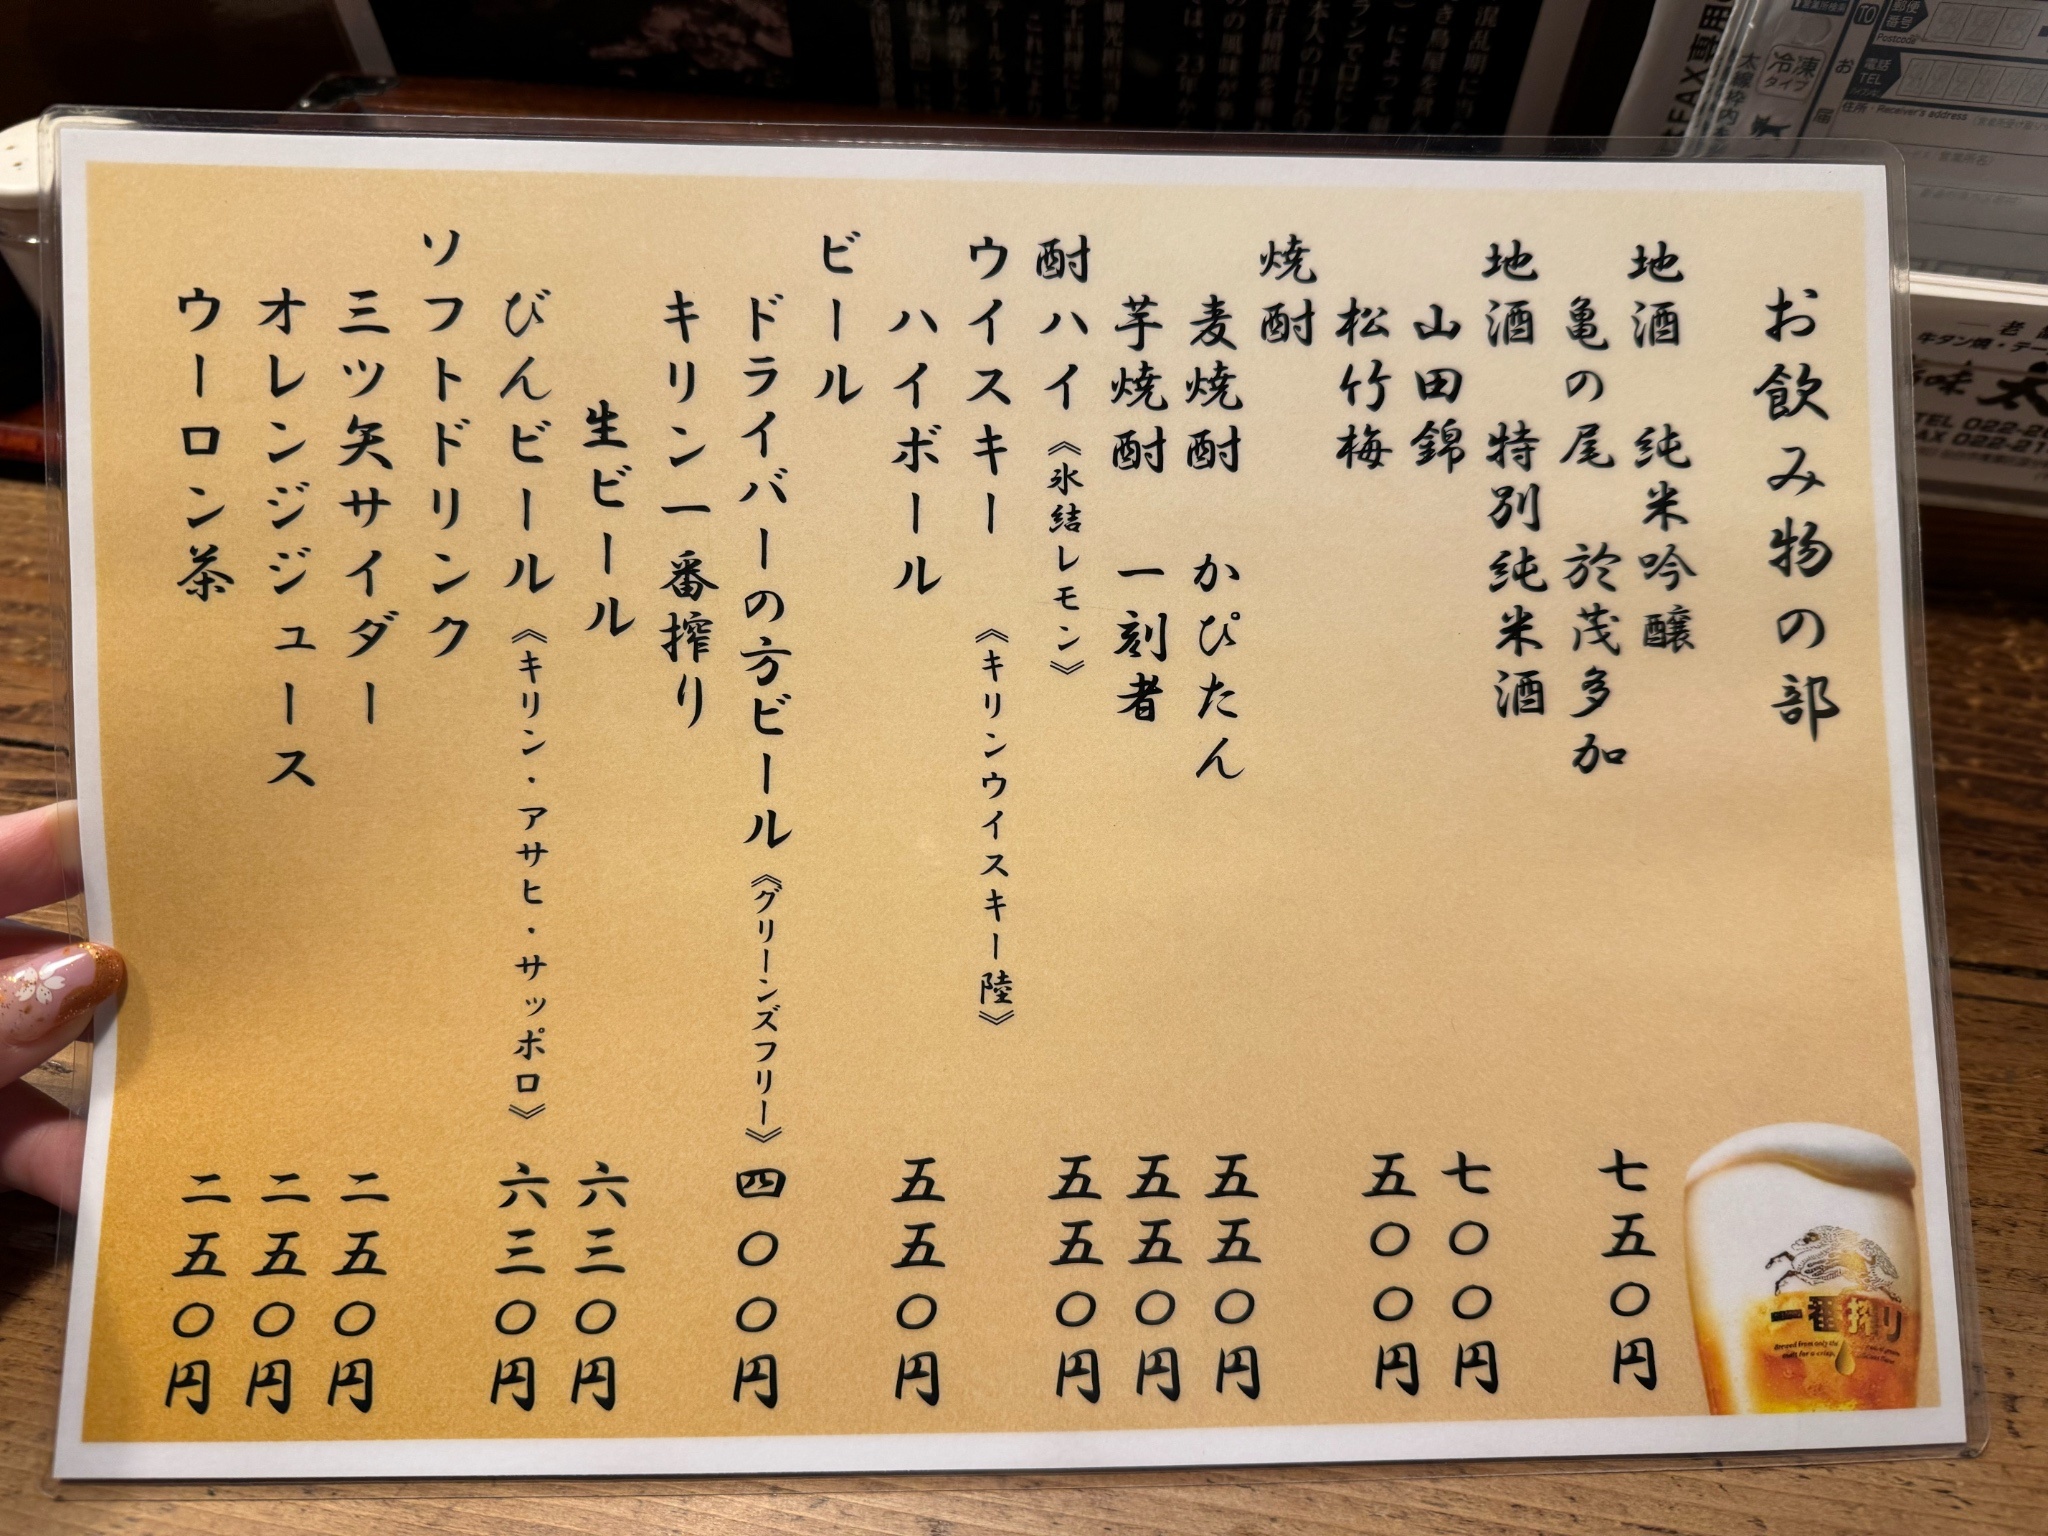 お飲み物の部
地酒 純米吟醸
亀の尾 於茂多加 七五〇円
地酒 特別純米酒
山田錦 七〇〇円
松竹梅 五〇〇円
焼酎
麦焼酎 かぴたん 五五〇円
芋焼酎 一刻者 五五〇円
酎ハイ《氷結レモン》 五五〇円
ウイスキー 《キリンウイスキー陸》
ハイボール 五五〇円
ビール
ドライバーの方ビール《グリーンズフリー》 四〇〇円
キリン一番搾り
生ビール 六三〇円
びんビール《キリン・アサヒ・サッポロ》 六三〇円
ソフトドリンク
三ツ矢サイダー 二五〇円
オレンジジュース 二五〇円
ウーロン茶 二五〇円
一番搾り
FAX専用
冷凍
タイプ
TO
郵便番号
Postcode
電話
TEL
お届
住所・Receiver's address
牛タン焼・テー
TEL 022-2
FAX 022-21